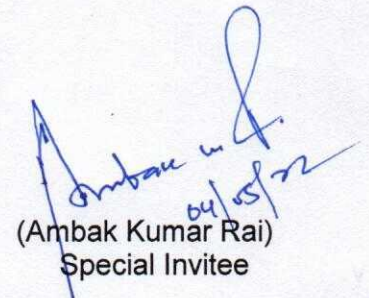 04/05/22
(Ambak Kumar Rai)
Special Invitee